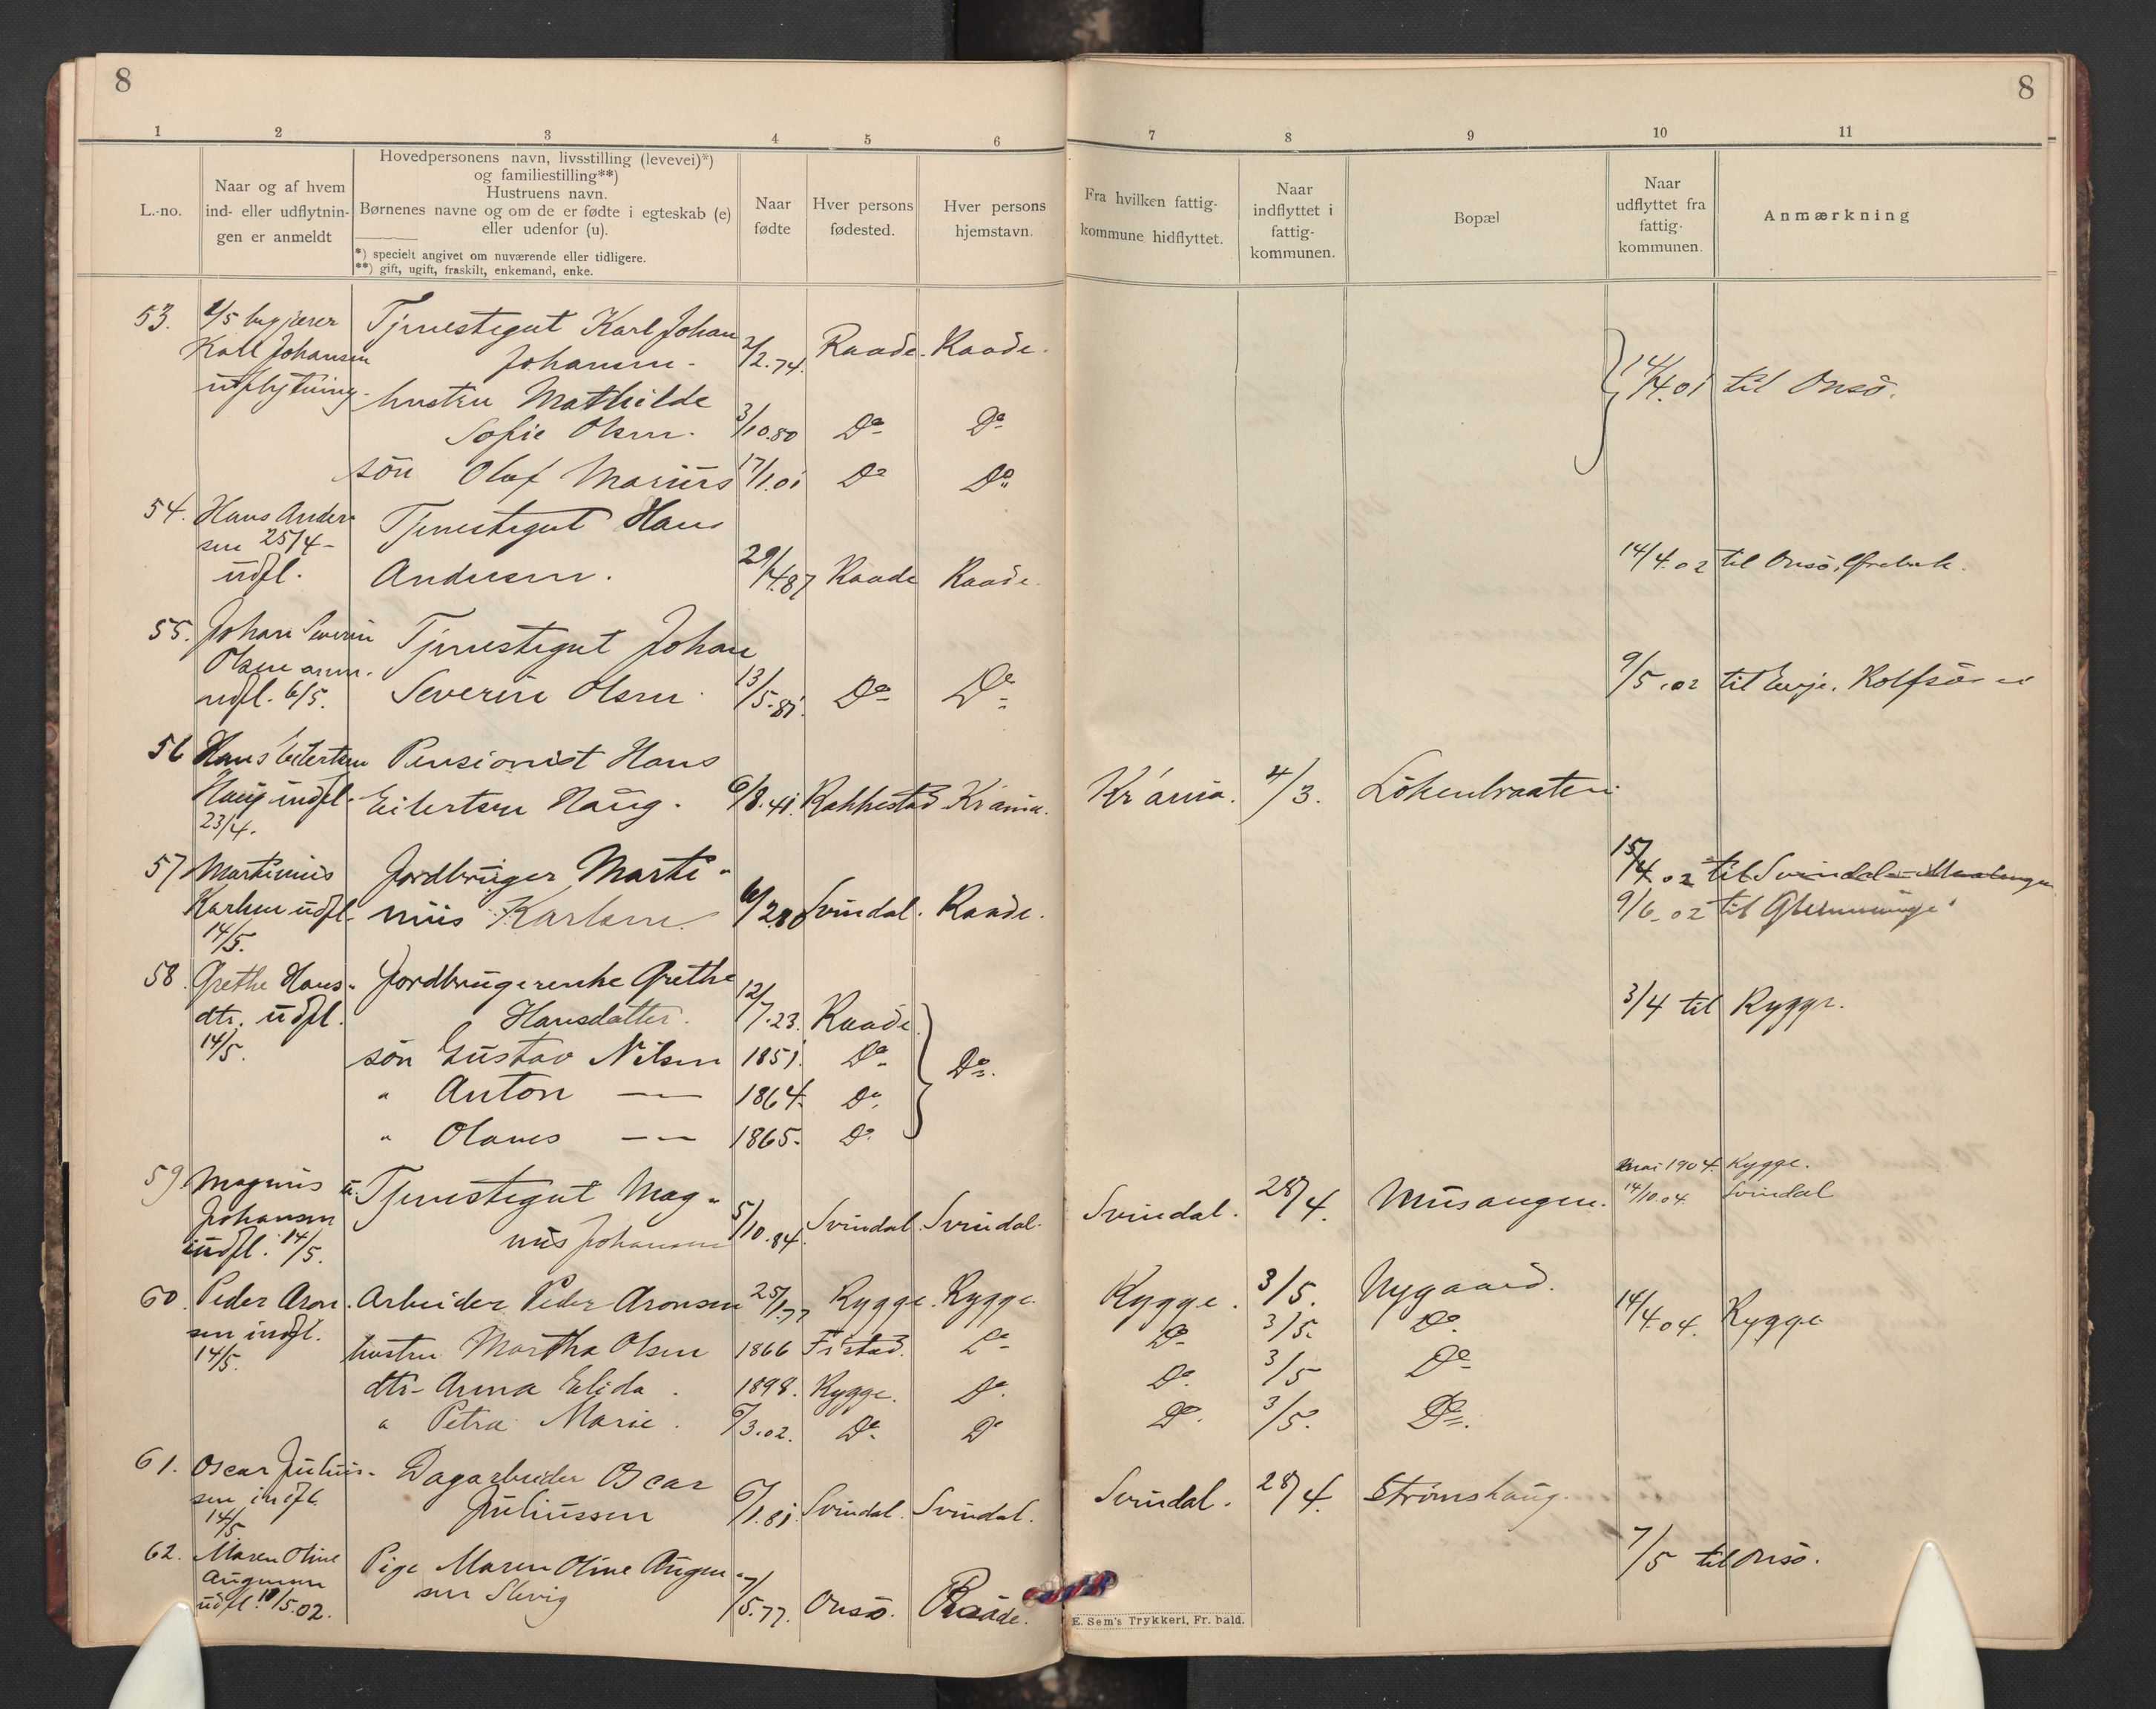 8
8
1 2 3 4 5 6 7 8 9 10 11
L.-no.
Naar og af hvem
ind- eller udflytnin-
gen er anmeldt
Hovedpersonens navn, livsstilling (levevei)*)
og familiestilling**)
Hustruens navn.
Børnenes navne og om de er fødte i egteskab (e)
eller udenfor (u).
*) specielt angivet om nuværende eller tidligere.
**) gift, ugift, fraskilt, enkemand, enke.
Naar
fødte
Hver persons
fødested.
Hver persons
hjemstavn.
Fra hvilken fattig-
kommune hidflyttet.
Naar
indflyttet i
fattig-
kommunen.
Bopæl
Naar
udflyttet fra
fattig-
kommunen.
Anmærkning
53. 1/5 begjærer Tjenestegut Karl Johan
Karl Johansen Johansen. 2/2.74. Raade. Raade.
udflytning. hustru Mathilde 14/4.01 til Onsö.
Sofie Olsen. 3/10.80 Do Do
sön Olaf Marius 17/1.01 Do Do
54. Hans Ander- Tjenestegut Hans
sen 25/4
udfl. Andersen. 29/4.87 Raade Raade. 14/4.02 til Onsö,
55. Johan Severin Tjenestegut Johan
Olsen anm.
udfl. 6/5. Severin Olsen 13/5.81. Do Do 9/5.02 til
56 Hans Eilertsen Pensionist Hans
Haug indfl. Eilertsen Haug. 6/8.41. Rakkestad Kr.ania. Kr.ania. 4/3. Lökenbraaten.
23/4.
57 Martinius Jordbruger Marti- 15/4.02 til Svindal
Karlsen udfl. nius Karlsen 6/2.80 Svindal. Raade. 9/6.02 til Glemminge
14/5.
58. Grethe Hans- Jordbrugerenke Grethe
dtr. udfl. Hansdatter. 12/7.23. Raade 3/4 til Rygge.
14/5. sön Gustav Nilsen 1851. Do Do
" Anton — 1864. Do
" Olaves — 1865. Do
59 Magnus u. Tjenestegut Mag- mai 1904. Rygge.
Johansen nus Johansen 5/10.84. Svindal. Svindal. Svindal. 28/4. Musangen. 14/10.04. Svindal
indfl. 14/5.
60. Peder Aron- Arbeider Peder Aronsen 25/1.77 Rygge. Rygge. Rygge. 3/5. Nygaard. 14/4.04. Rygge
sen indfl.
14/5. hustru Martha Olsen 1866 Fr.stad. Do Do 3/5. Do.
dtr. Anna Elida. 1898. Rygge. Do. Do. 3/5 Do
" Petra Marie. 6/3.02. Do. Do Do. 3/5. Do.
61. Oscar Julius- Dagarbeider Oscar
sen indfl. Juliussen 6/1.81. Svindal. Svindal. Svindal. 28/4. Strömshaug.
14/5.
62. Maren Oline Pige Maren Oline Augen- 7/5 til Onsö.
Augensen sen Slevig 7/5.77. Onsö. Raade.
udfl. 10/5.02.
E. Sem's Trykkeri, Fr. hald.